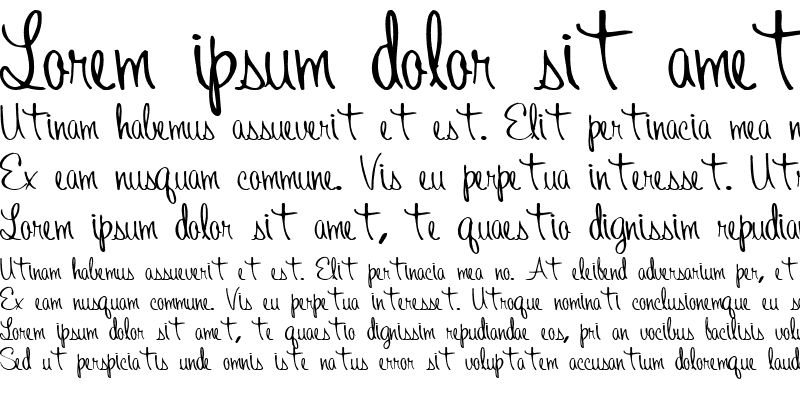 Lorem ipsum dolor sit amet
Utinam habemus assueverit et est. Elit pertinacia mea n
Ex eam nusquam commune. Vis eu perpetua interesset. Utr
Lorem ipsum dolor sit amet, te quaestio dignissim repudian
Utinam habemus assueverit et est. Elit pertinacia mea no. At eleibend adversarium per, et
Ex eam nusquam commune. Vis eu perpetua interesset. Utroque nominati conclusionemque eu s
Lorem ipsum dolor sit amet, te quaestio dignissim repudiandae eos, pri an vocibus bacilisis volu
Sed ut perspiciatis unde omnis iste natus error sit voluptatem accusantium doloremque laud